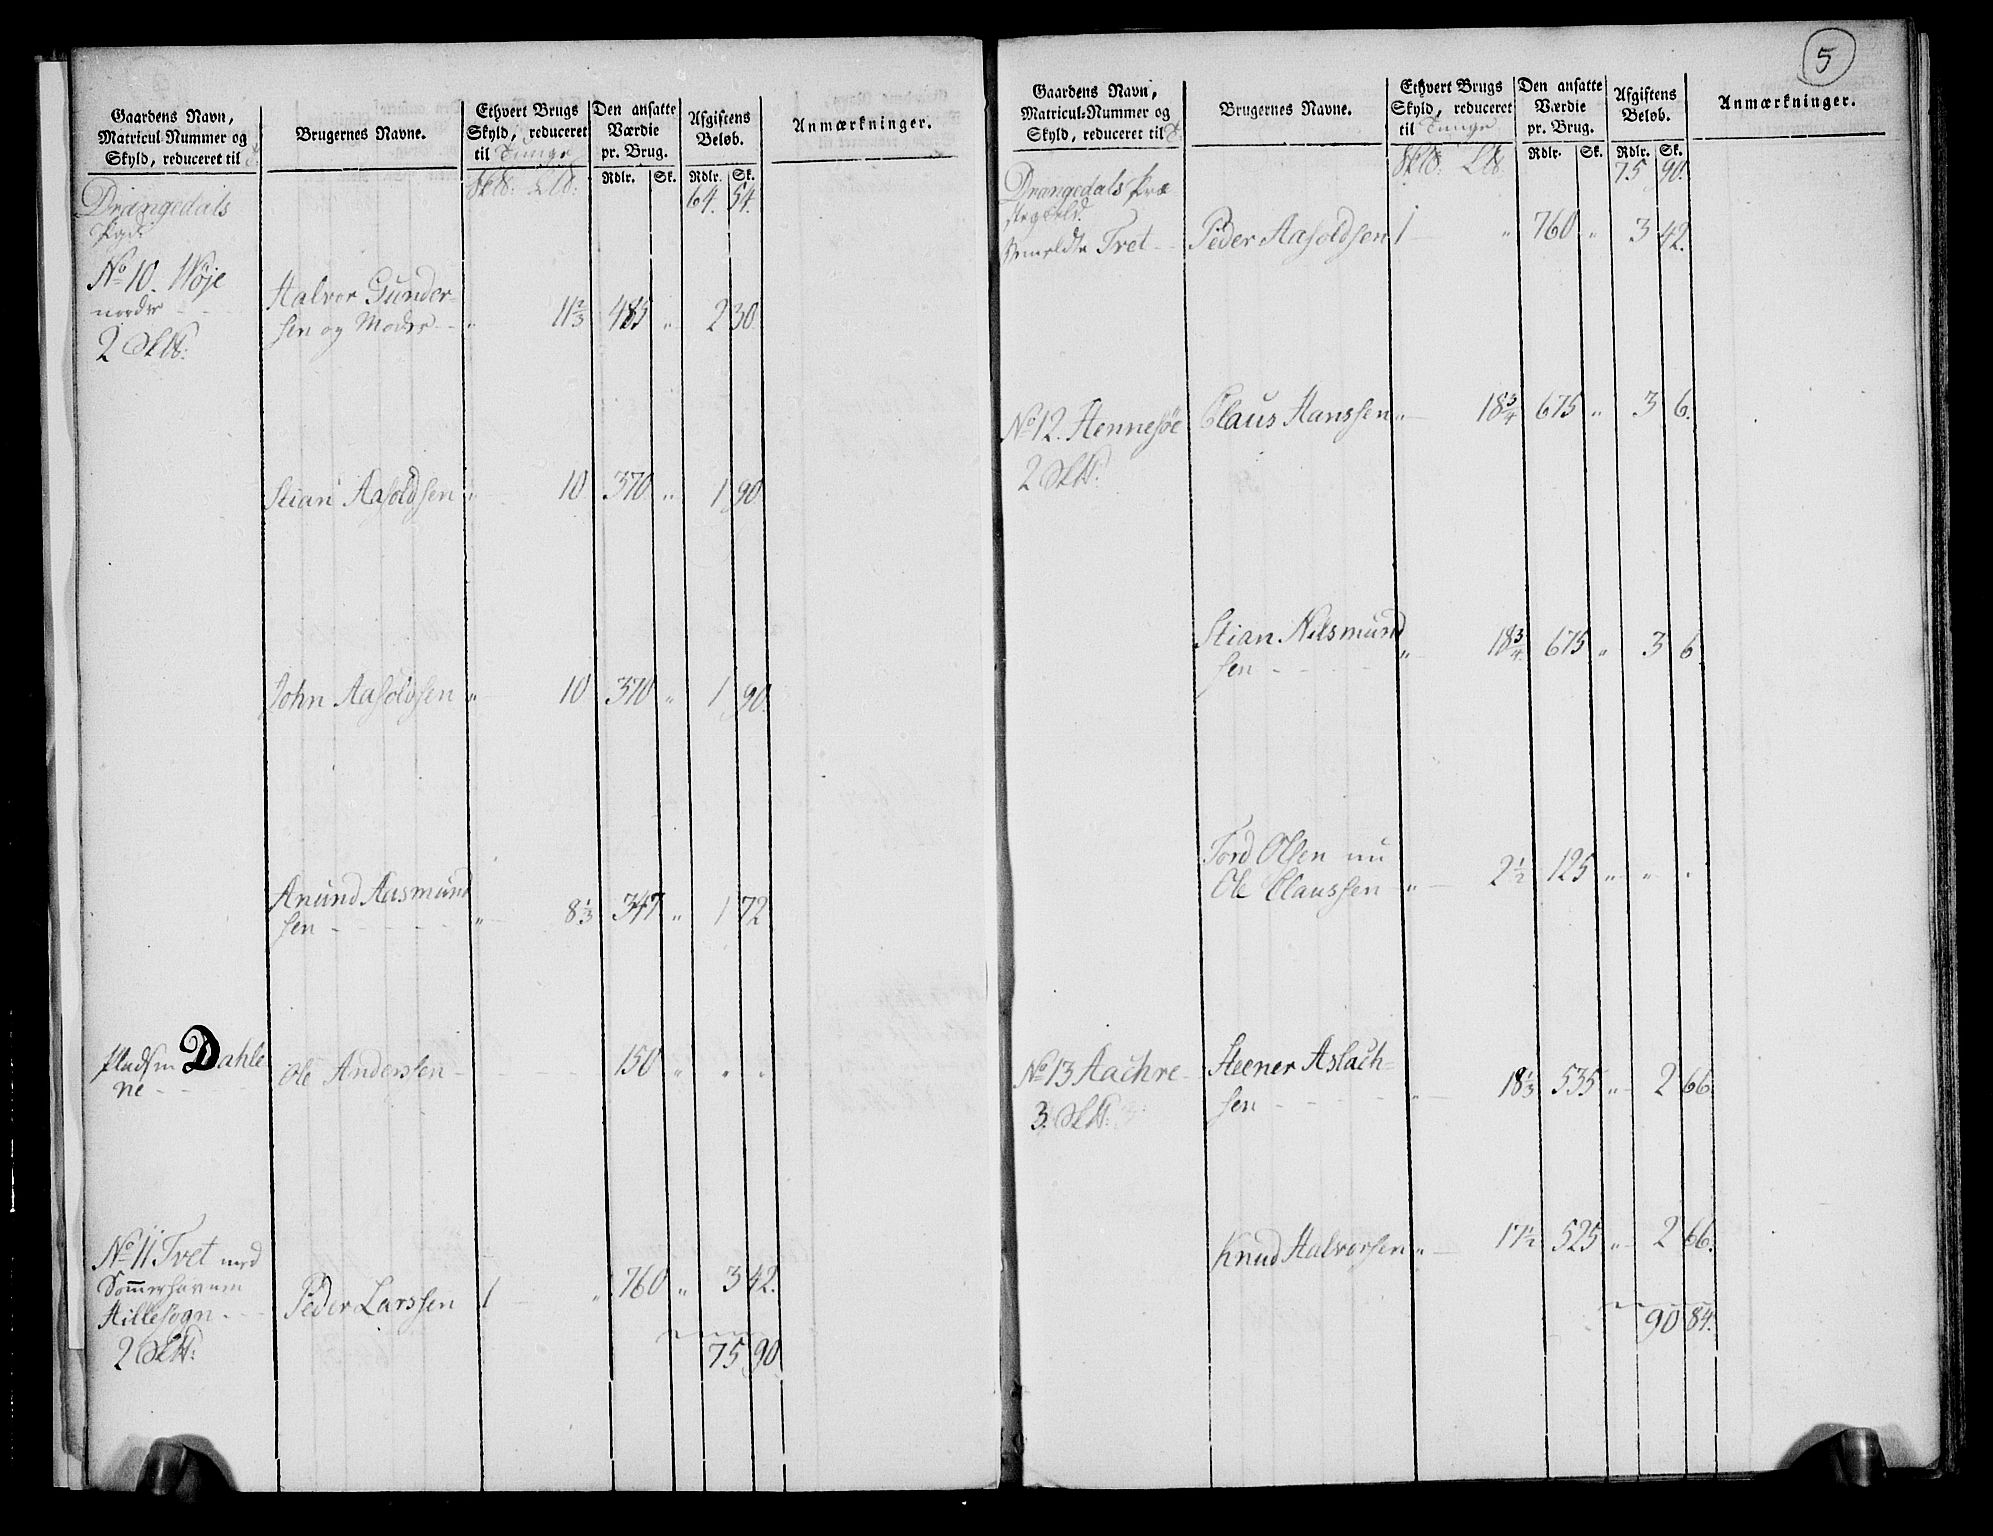 Gaardens Navn,
Matricul-Nummer og
Skyld, reduceret til
Brugernes Navne.
Ethvert Brugs
Skyld, reduceret
til Tunge
Den ansatte
Værdie
pr. Brug.
Rdlr. Sk.
Afgiftens
Beløb.
Rdlr. Sk.
Anmærkninger.
Drangedals
Pgd:
64. 54.
No 10. Wøje
nordre
2 Skp:
Halvor Gunder-
sen og Moder - - „ 11 2/3 485 „ 2 30.
Stian Aasoldsen „ 10 370 „ 1 90
John Aasoldsen „ 10 370 „ 1 90.
Anund Aasmund
sen - - - - „ 8 1/3 347 „ 1 72
Pladsen Dahle
ne - -
Ole Anderssen - 150 „ „ „
No 11 Tvet med
Sommerhavnen
Hillesogn - -
2 Skp:
Peder Larssen 1 „ 760 „ 3 42.
75 90
5
Gaardens Navn,
Matricul-Nummer og
Skyld, reduceret til
Brugernes Navne.
Ethvert Brugs
Skyld, reduceret
til Tunge
Den ansatte
Værdie
pr. Brug.
Rdlr. Sk.
Afgiftens
Beløb.
Rdlr. Sk.
Anmærkninger.
75 90.
Drangedals Præ
stegield.
Tvet - - Peder Aasoldsen 1 „ 760 „ 3 42.
No 12. Hennesøe
2 Skp:
Claus Hanssen „ 18 3/4 675 „ 3 6.
Stian Nilsmund
sen - - - - „ 18 3/4 675 „ 3 6
Tord Olsen nu
Ole Claussen - „ 2 1/2 125 „ „ „
No 13 Aachre -
3. Skp:
Steener Aslach-
sen - - - - „ 18 1/3 535 „ 2 66.
Knud Halvorsen „ 17 1/2 525 „ 2 66.
90 84.